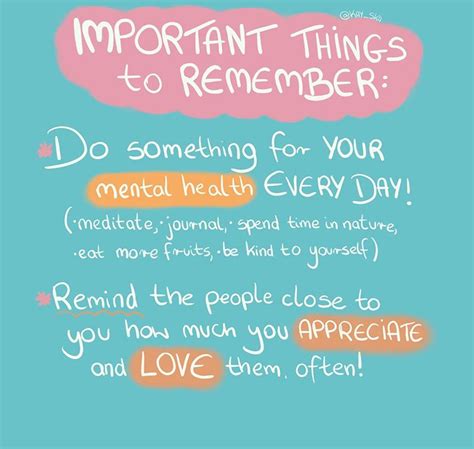 IMPORTANT THINGS
to REMEMBER:
*Do something for YOUR
mental health EVERY DAY!
(·meditate,·journal,·spend time in nature,
·eat more fruits,·be kind to yourself)
*Remind the people close to
you how much you APPRECIATE
and LOVE them. often!